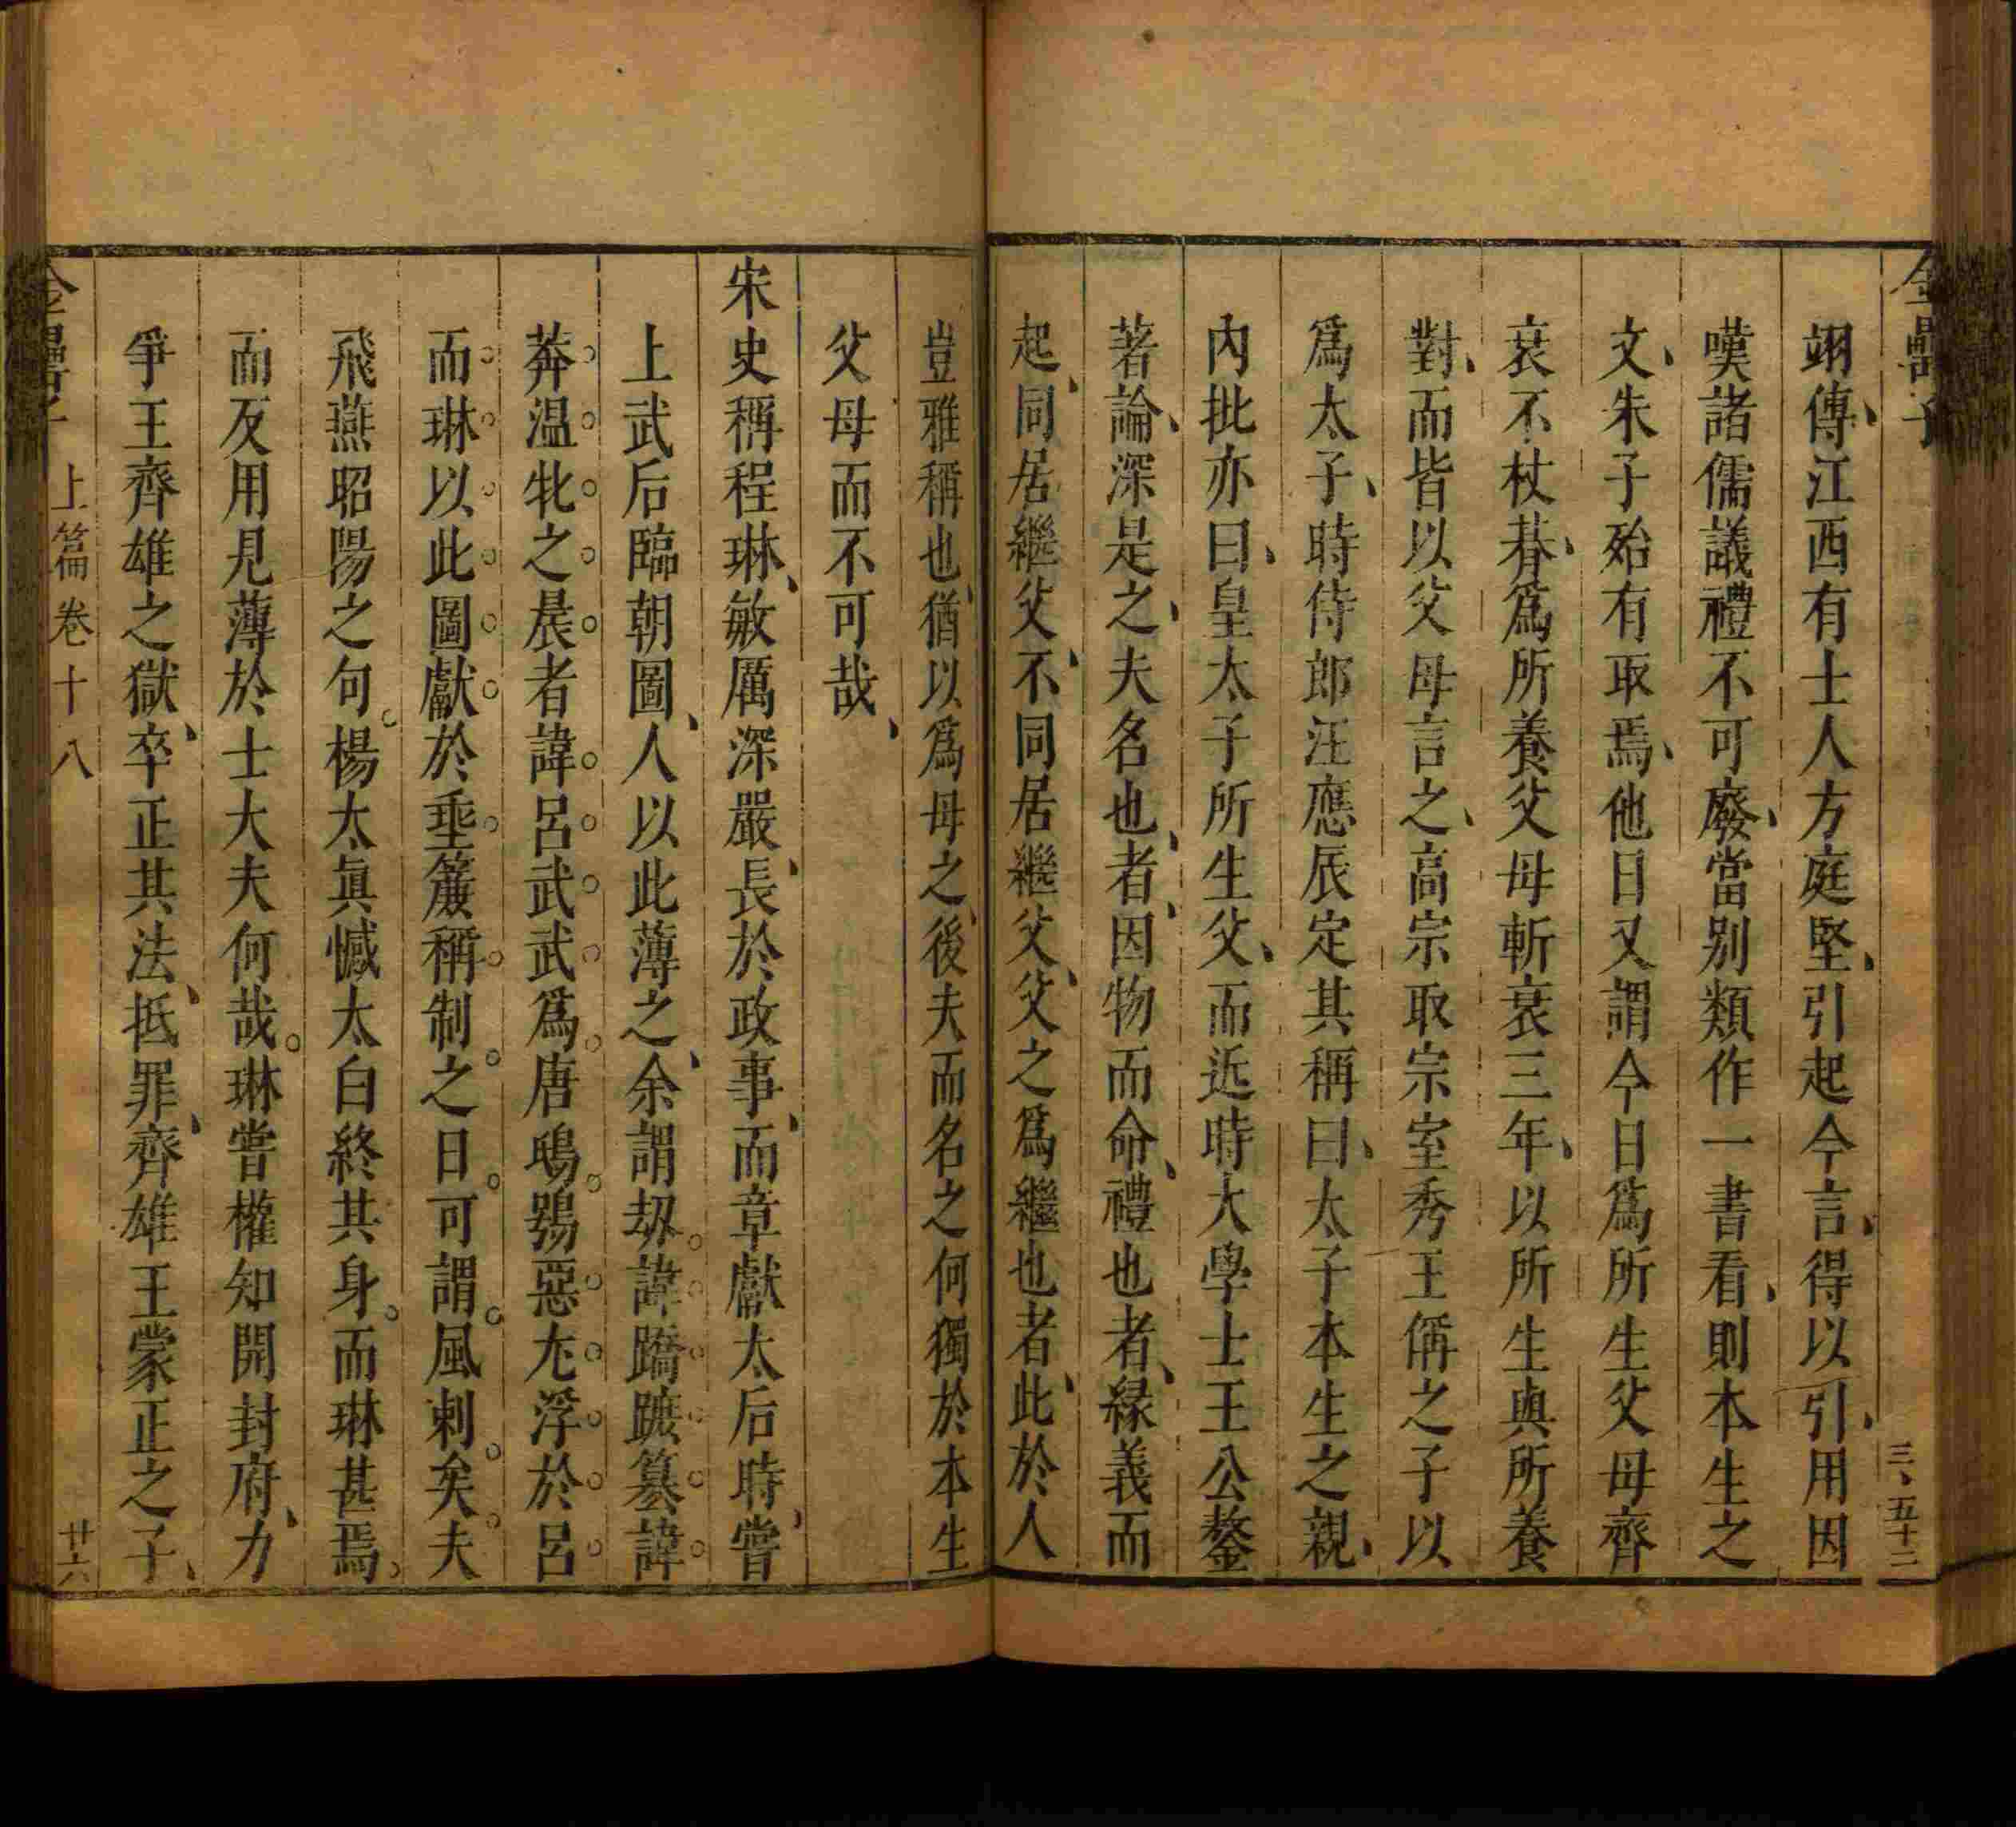 金罍子
三、五十二
翊傳、江西有士人方庭堅、引起今言、得以引、用因
嘆諸儒議禮不可廢、當別類作一書看、則本生之
文、朱子殆有取焉、他日又謂今日爲所生父母齊
衰不杖朞、爲所養父母斬衰三年、以所生與所養
對、而皆以父母言之、高宗取宗室秀王偁之子以
爲太子、時侍郎汪應辰定其稱曰、太子本生之親、
內批亦曰、皇太子所生父、而近時大學士王公鏊
著論、深是之、夫名也、者、因物而命、禮也者、緣義而
起、同居繼父、不同居繼父、父之爲繼也者、此於人
豈雅稱也、猶以爲母之、後夫而名之何獨於本生
父母而不可哉、
宋史稱程琳、敏厲深嚴、長於政事、而章獻太后時、嘗
上武后臨朝圖、人以此薄之、余謂刼諱蹻蹠簒諱
莽温牝之晨者諱呂武武爲唐鴟鴞惡尤浮於呂
而琳以此圖獻於垂簾稱制之日可謂風刺矣夫
飛燕昭陽之句楊太眞憾太白終其身而琳甚焉
而反用見薄於士大夫何哉琳嘗權知開封府、力
爭王齊雄之獄、卒正其法、抵罪、齊雄王蒙正之子、
金罍子 上篇卷十八 廿六